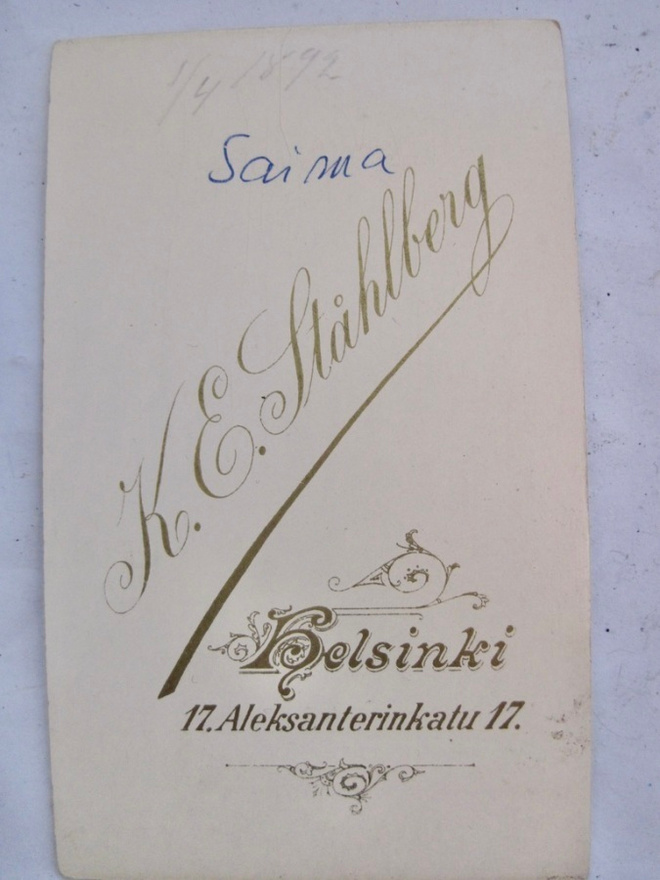 1/4 1892
Saima
K. E. Ståhlberg
Helsinki
17. Aleksanterinkatu 17.